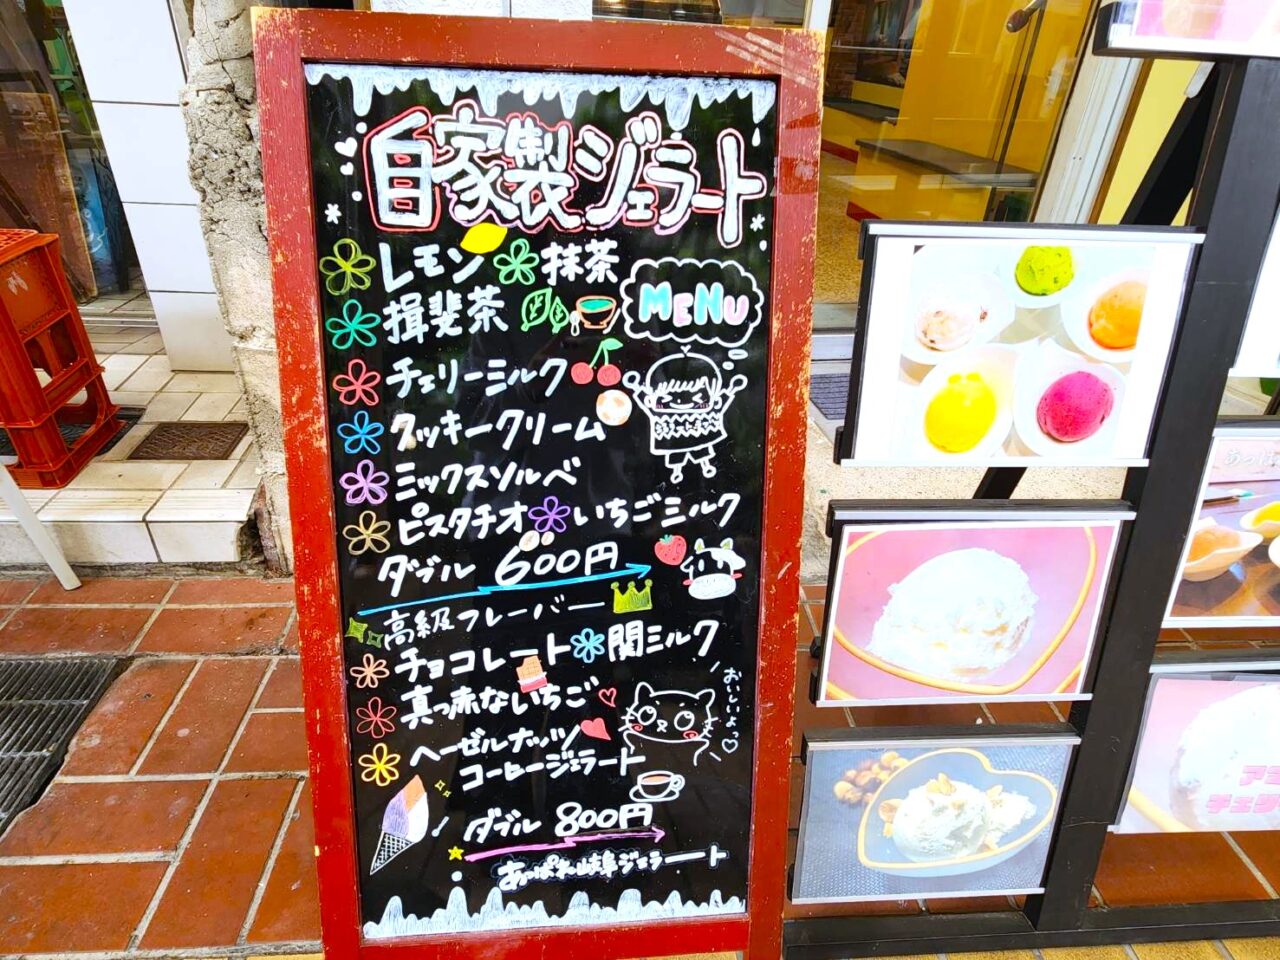 自家製ジェラート
レモン 抹茶
揖斐茶
MENU
チェリーミルク
クッキークリーム
ミックスソルベ
ピスタチオ いちごミルク
ダブル 600円
高級フレーバー
チョコレート 関ミルク
真っ赤ないちご
おいしいよっ♡
ヘーゼルナッツ
コーヒージェラート
ダブル 800円
あっぱれ岐阜ジェラート